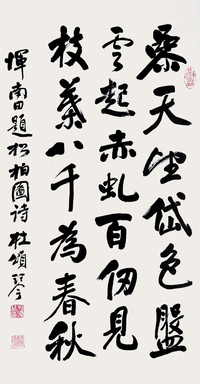 參天望岱色盤
雲起赤虬百仞見
枝葉八千為春秋
惲南田題松柏圖詩 杜頌琴